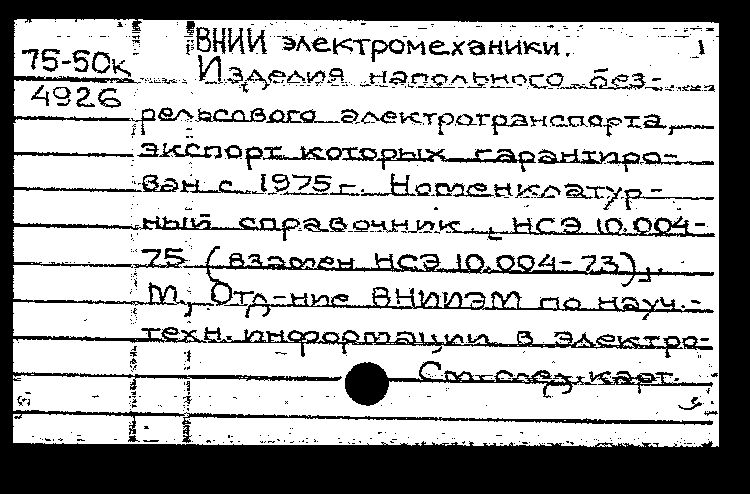 ВНИИ электромеханики. 1
75-50к
Изделия напольного без-
4926
рельсового электротранспорта,
экспорт которых гарантиро-
ван с 1975 г. Номенклатур-
ный справочник. НСЭ 10.004-
75 (взамен НСЭ 10.004-73),.
М, Отд-ние ВНИИЭМ по науч.-
техн. информации в электро-
См.след.карт.